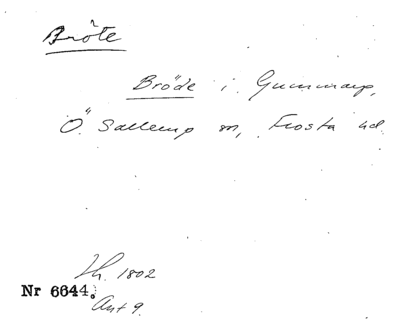 Bröte
Bröde i Gummarp,
Ö. Sallerup sn, Frosta hd.
Lh. 1802
Nr 6644.
Ant 9.